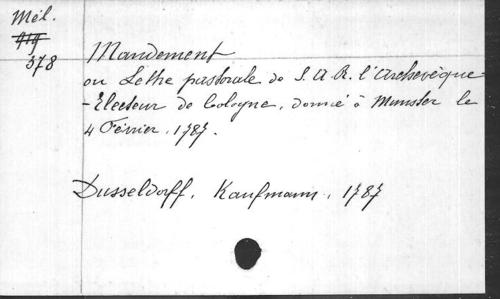 Mél.
919
578
Mandement
ou Lettre pastorale de S. A. R. l'archevêque
-Electeur de Cologne, donné à Munster le
4 Février, 1787.
Dusseldorff, Kaufmann, 1787